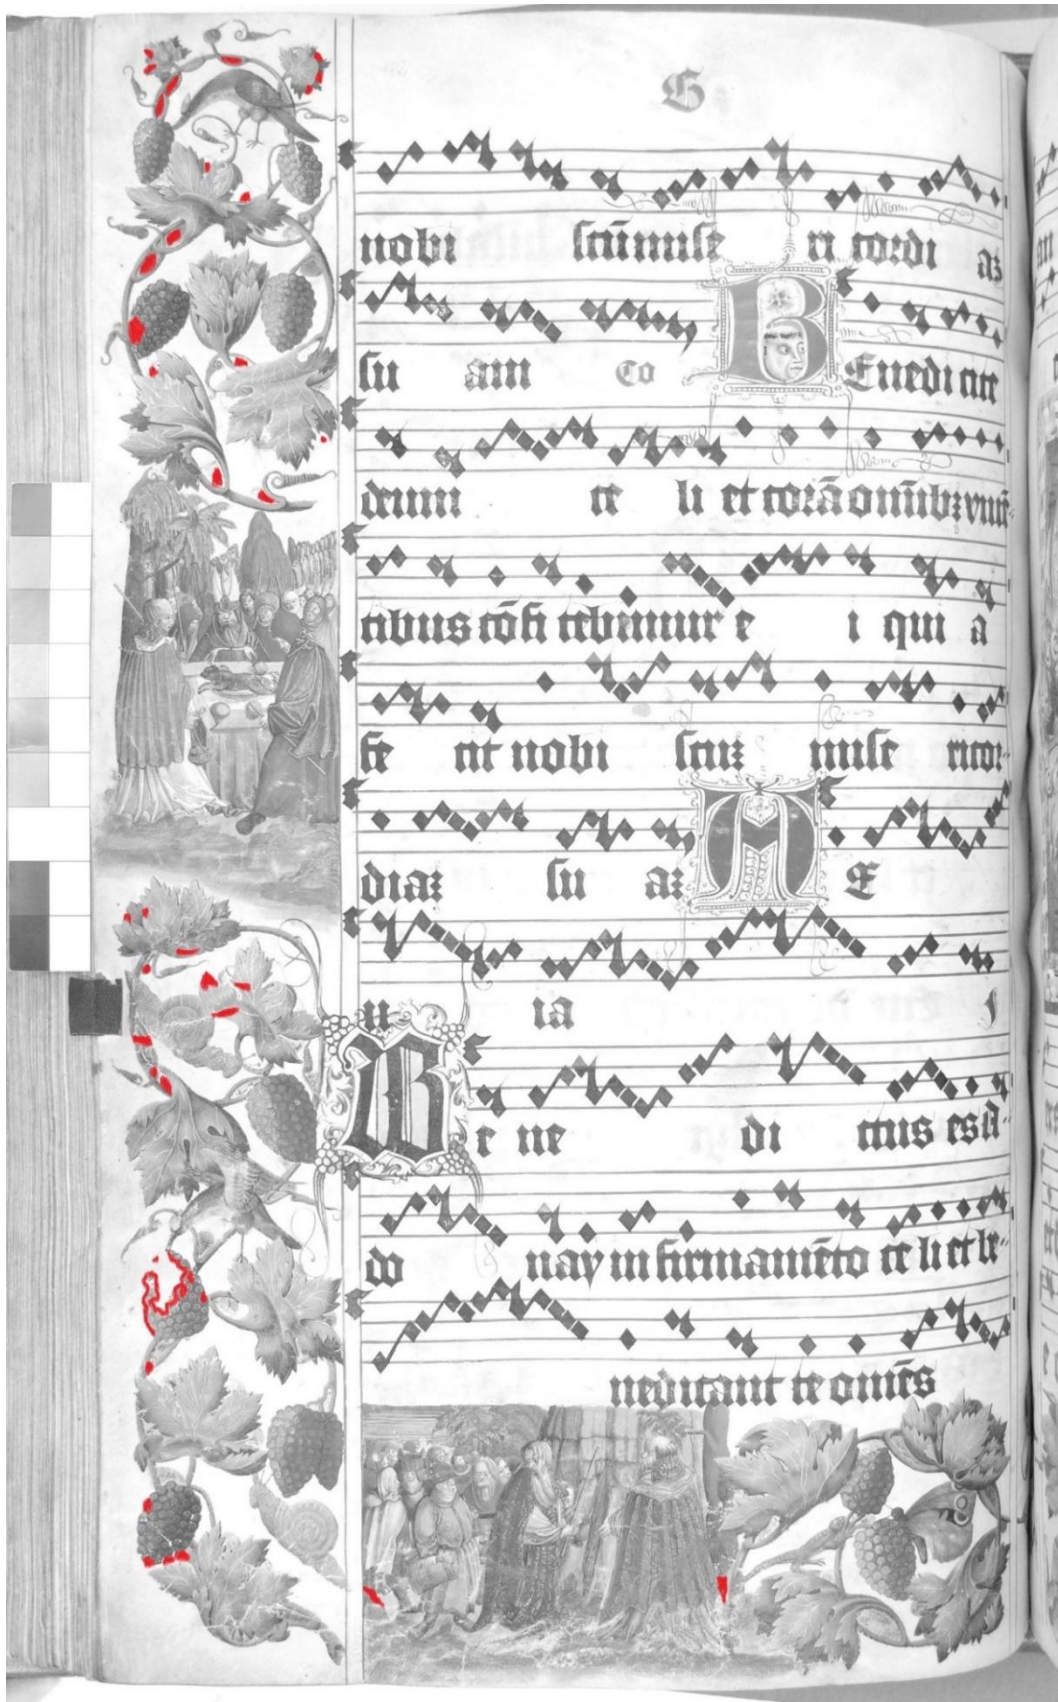 G
nobi scūmise ri cordi aꝫ
su am Co BEnedicite
deum ce li et corā omībꝫ viuē-
tibus cōfi tebimur e i qui a
fe cit nobi scuꝫ mise ricor-
diaꝫ su aꝫ AE
u ia
Be ne di ctus es i
do nay in firmamēto ce li et le-
nedicant te omēs